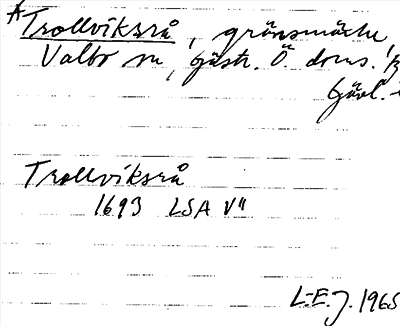 *Trollviksrå, gränsmärke
Valbo sn, Gästr. Ö. doms.
Gävl.
Trollviksrå
1693 LSA V"
L-E.J. 1965